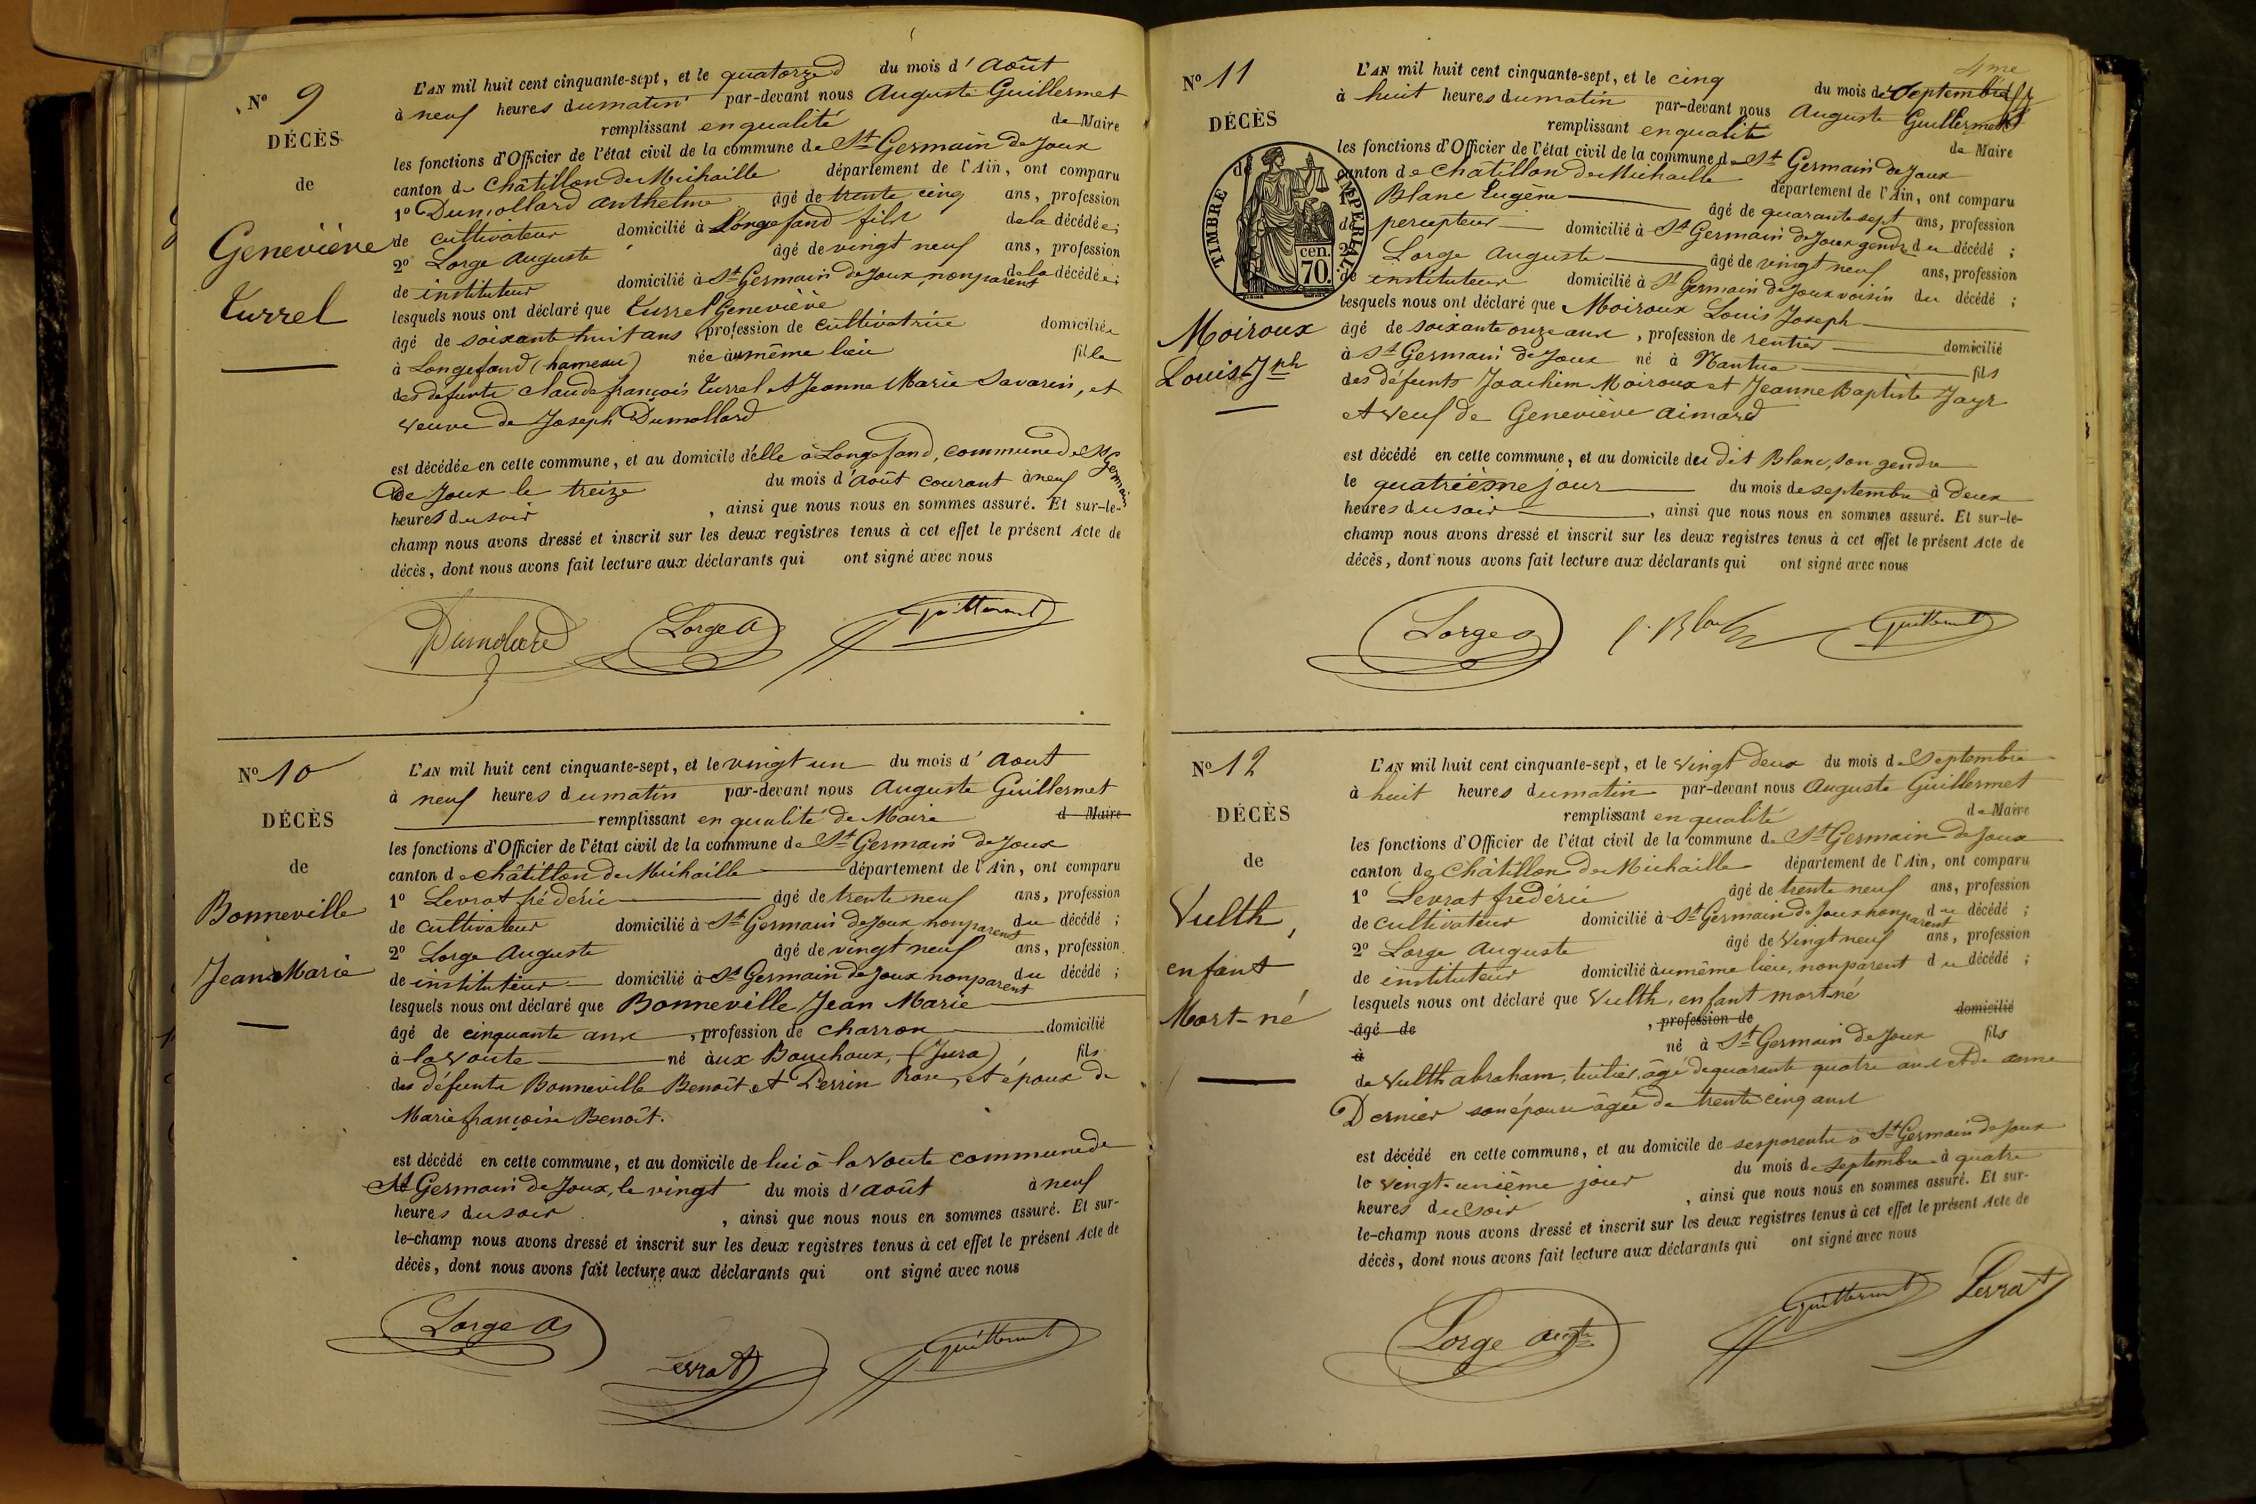 N° 9
DÉCÈS
de
Geneviève
Turrel
L'AN mil huit cent cinquante-sept, et le quatorze du mois d'Août
à neuf heures du matin par-devant nous Auguste Guillermet
remplissant en qualité de Maire
les fonctions d'Officier de l'état civil de la commune de St Germain de Joux
canton de Châtillon de Michaille département de l'Ain, ont comparu
1° Dumollard Anthelme âgé de trente cinq ans, profession
de cultivateur domicilié à Longefand fils de la décédée;
2° Lorge Auguste âgé de vingt neuf ans, profession
de instituteur domicilié à St Germain de Joux, non parent de la décédée;
lesquels nous ont déclaré que Turrel Geneviève
âgé de soixante huit ans, profession de cultivatrice domiciliée
à Longefand (hameau) née au même lieu fille
des défunts Claude françois Turrel et Jeanne Marie Savarin, et
veuve de Joseph Dumollard
est décédée en cette commune, et au domicile d'elle à Longefand, commune de St Germain
de Joux le treize du mois d'août courant à neuf
heures du soir, ainsi que nous nous en sommes assuré. Et sur-le-
champ nous avons dressé et inscrit sur les deux registres tenus à cet effet le présent Acte de
décès, dont nous avons fait lecture aux déclarants qui ont signé avec nous
Dumolard Lorge A Guillermet
N° 10
DÉCÈS
de
Bonneville
Jean Marie
L'AN mil huit cent cinquante-sept, et le vingt un du mois d'Aout
à neuf heures du matin par-devant nous Auguste Guillermet
remplissant en qualité de Maire de Maire
les fonctions d'Officier de l'état civil de la commune de St Germain de Joux
canton de Châtillon de Michaille département de l'Ain, ont comparu
1° Levrat frédéric âgé de trente neuf ans, profession
de cultivateur domicilié à St Germain de Joux non parent du décédé;
2° Lorge Auguste âgé de vingt neuf ans, profession
de instituteur domicilié à St Germain de Joux non parent du décédé;
lesquels nous ont déclaré que Bonneville Jean Marie
âgé de cinquante ans, profession de charron domicilié
à la Voute né aux Bouchoux, (Jura) fils
des défunts Bonneville Benoit et Perrin Rose, et époux de
Marie françoise Benoît.
est décédé en cette commune, et au domicile de lui à la Voute commune de
St Germain de Joux, le vingt du mois d'août à neuf
heures du soir, ainsi que nous nous en sommes assuré. Et sur-
le-champ nous avons dressé et inscrit sur les deux registres tenus à cet effet le présent Acte de
décès, dont nous avons fait lecture aux déclarants qui ont signé avec nous
Lorge A Levrat Guillermet
4me
N° 11
DÉCÈS
TIMBRE IMPERIAL
70 cen.
Moiroux
Louis Jph
L'AN mil huit cent cinquante-sept, et le cinq du mois de Septembre
à huit heures du matin par-devant nous Auguste Guillermet
remplissant en qualité de Maire
les fonctions d'Officier de l'état civil de la commune de St Germain de Joux
canton de Châtillon de Michaille département de l'Ain, ont comparu
Blanc Eugène âgé de quarante sept ans, profession
de percepteur domicilié à St Germain de Joux gendre du décédé;
2° Lorge Auguste âgé de vingt neuf ans, profession
de instituteur domicilié à St Germain de Joux voisin du décédé;
lesquels nous ont déclaré que Moiroux Louis Joseph
âgé de soixante onze ans, profession de rentier domicilié
à St Germain de Joux né à Nantua fils
des défunts Joachim Moiroux et Jeanne Baptiste Jayr
et veuf de Geneviève Aimard
est décédé en cette commune, et au domicile du dit Blanc, son gendre
le quatrième jour du mois de septembre à deux
heures du soir, ainsi que nous nous en sommes assuré. Et sur-le-
champ nous avons dressé et inscrit sur les deux registres tenus à cet effet le présent Acte de
décès, dont nous avons fait lecture aux déclarants qui ont signé avec nous
Lorge A Guillermet
N° 12
DÉCÈS
de
Vulth,
enfant
Mort-né
L'AN mil huit cent cinquante-sept, et le vingt deux du mois de Septembre
à huit heures du matin par-devant nous Auguste Guillermet
remplissant en qualité de Maire
les fonctions d'Officier de l'état civil de la commune de St Germain de Joux
canton de Châtillon de Michaille département de l'Ain, ont comparu
1° Levrat frédéric âgé de trente neuf ans, profession
de cultivateur domicilié à St Germain de Joux non parent du décédé;
2° Lorge Auguste âgé de vingt neuf ans, profession
de instituteur domicilié au même lieu, non parent du décédé;
lesquels nous ont déclaré que Vulth, enfant mort-né
âgé de, profession de domicilié
à né à St Germain de Joux fils
de Vulth abraham, âgé de quarante quatre ans et de anne
Dernier son épouse âgée de trente cinq ans
est décédé en cette commune, et au domicile de ses parents à St Germain de Joux
le vingt-unième jour du mois de septembre à quatre
heures du soir, ainsi que nous nous en sommes assuré. Et sur-
le-champ nous avons dressé et inscrit sur les deux registres tenus à cet effet le présent Acte de
décès, dont nous avons fait lecture aux déclarants qui ont signé avec nous
Lorge Augte Guillermet Levrat